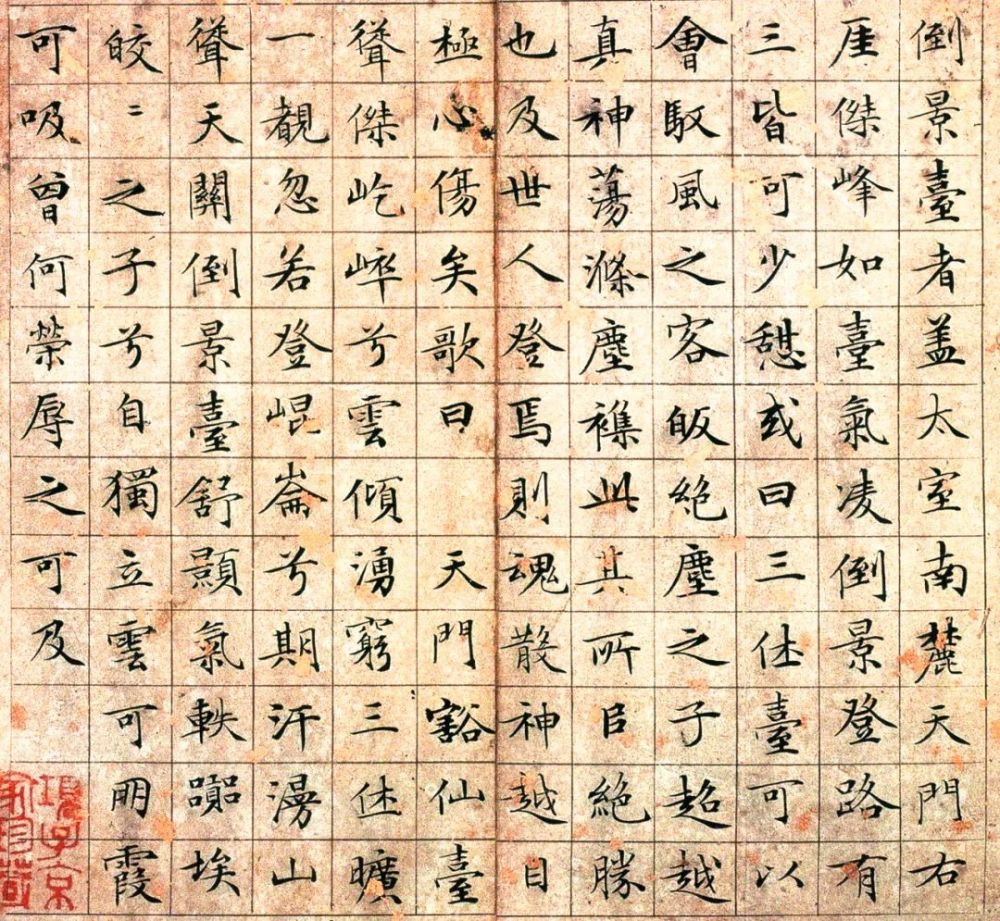 倒景臺者盖太室南麓天門右
厓傑峰如臺氣凌倒景登路有
三皆可少憩或曰三休臺可以
會馭風之客皈絶塵之子超越
真神蕩滌塵襟此其所㠯絶勝
也及世人登焉則魂散神越目
極心傷矣歌曰　天門豁仙臺
聳傑屹崒兮雲傾湧窮三休曠
一覩忽若登崐崙兮期汗漫山
聳天關倒景臺舒顥氣軼囂埃
皎〻之子兮自獨立雲可朋霞
可吸曾何榮辱之可及
項子京
家珍藏